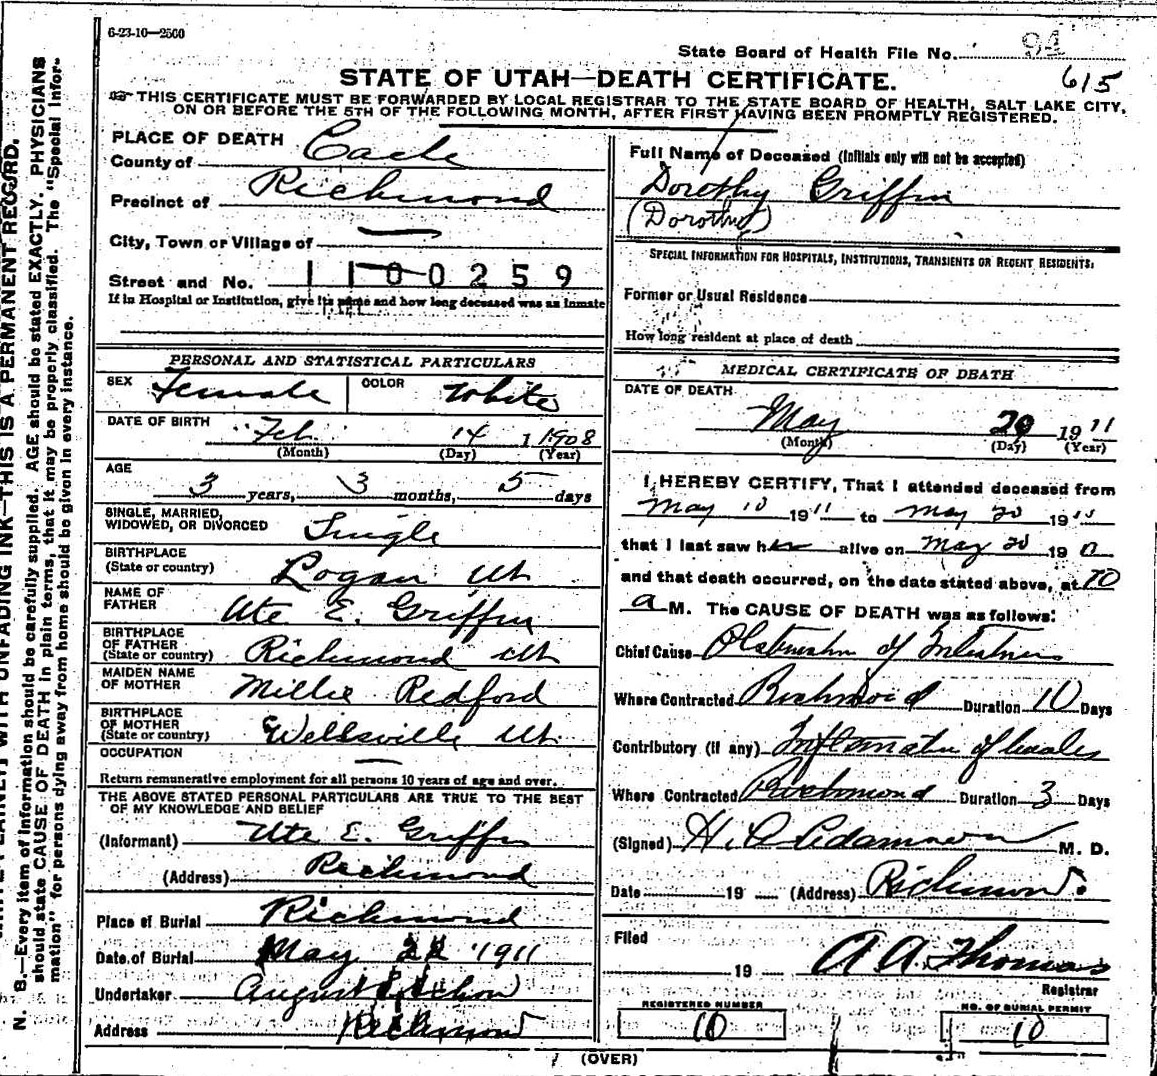 6-23-10—2500
State Board of Health File No. 94
615
STATE OF UTAH—DEATH CERTIFICATE.
THIS CERTIFICATE MUST BE FORWARDED BY LOCAL REGISTRAR TO THE STATE BOARD OF HEALTH, SALT LAKE CITY,
ON OR BEFORE THE 5TH OF THE FOLLOWING MONTH, AFTER FIRST HAVING BEEN PROMPTLY REGISTERED.
PLACE OF DEATH
County of Cache
Precinct of Richmond
City, Town or Village of —
Street and No. 1100259
If in Hospital or Institution, give its name and how long deceased was an inmate
PERSONAL AND STATISTICAL PARTICULARS
SEX Female COLOR White
DATE OF BIRTH Feb 14 1908
(Month) (Day) (Year)
AGE
3 years, 3 months, 5 days
SINGLE, MARRIED,
WIDOWED, OR DIVORCED Single
BIRTHPLACE
(State or country) Logan Ut
NAME OF
FATHER Ute E. Griffin
BIRTHPLACE
OF FATHER
(State or country) Richmond Ut
MAIDEN NAME
OF MOTHER Millie Redford
BIRTHPLACE
OF MOTHER
(State or country) Wellsville Ut.
OCCUPATION —
Return remunerative employment for all persons 10 years of age and over.
THE ABOVE STATED PERSONAL PARTICULARS ARE TRUE TO THE BEST
OF MY KNOWLEDGE AND BELIEF
(Informant) Ute E. Griffin
(Address) Richmond
Place of Burial Richmond
Date of Burial May 22 1911
Undertaker August
Address Richmond
Full Name of Deceased (Initials only will not be accepted)
Dorothy Griffin
(Dorothy)
SPECIAL INFORMATION FOR HOSPITALS, INSTITUTIONS, TRANSIENTS OR RECENT RESIDENTS.
Former or Usual Residence
How long resident at place of death
MEDICAL CERTIFICATE OF DEATH
DATE OF DEATH
May 20 1911
(Month) (Day) (Year)
I HEREBY CERTIFY, That I attended deceased from
May 10 1911 to May 20 19
that I last saw her alive on May 20 19
and that death occurred, on the date stated above, at 10
a M. The CAUSE OF DEATH was as follows:
Chief Cause Obstruction of Intestines
Where Contracted Richmond Duration 10 Days
Contributory (if any) Inflamation of bowles
Where Contracted Richmond Duration 3 Days
(Signed) H. Adamson M. D.
Date 19 (Address) Richmond.
Filed
19 A A. Thomas
Registrar
REGISTERED NUMBER
10
NO. OF BURIAL PERMIT
10
(OVER)
WITH UNFADING INK—THIS IS A PERMANENT RECORD.
N. B.—Every item of information should be carefully supplied. AGE should be stated EXACTLY. PHYSICIANS
should state CAUSE OF DEATH in plain terms, that it may be properly classified. The "Special Infor-
mation" for persons dying away from home should be given in every instance.